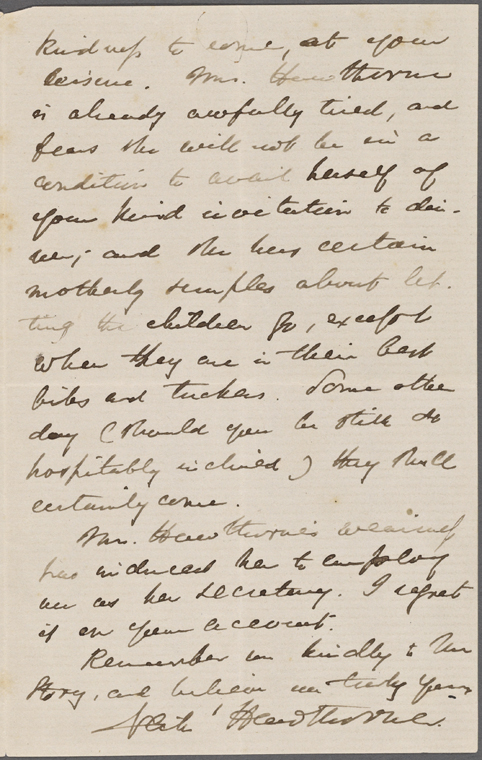 kindness to come, at your
leisure. Mrs. Hawthorne
is already awfully tired, and
fears she will not be in a
condition to avail herself of
your kind invitation to din-
ner; and she has certain
motherly scruples about let-
ting the children go, except
when they are in their best
bibs and tuckers. Some other
day (should you be still so
hospitably inclined) they shall
certainly come.
Mrs. Hawthorne's weariness
has induced her to employ
me as her secretary. I regret
it on your account.
Remember me kindly to Mr
Story, and believe me truly yours
Nath' Hawthorne.